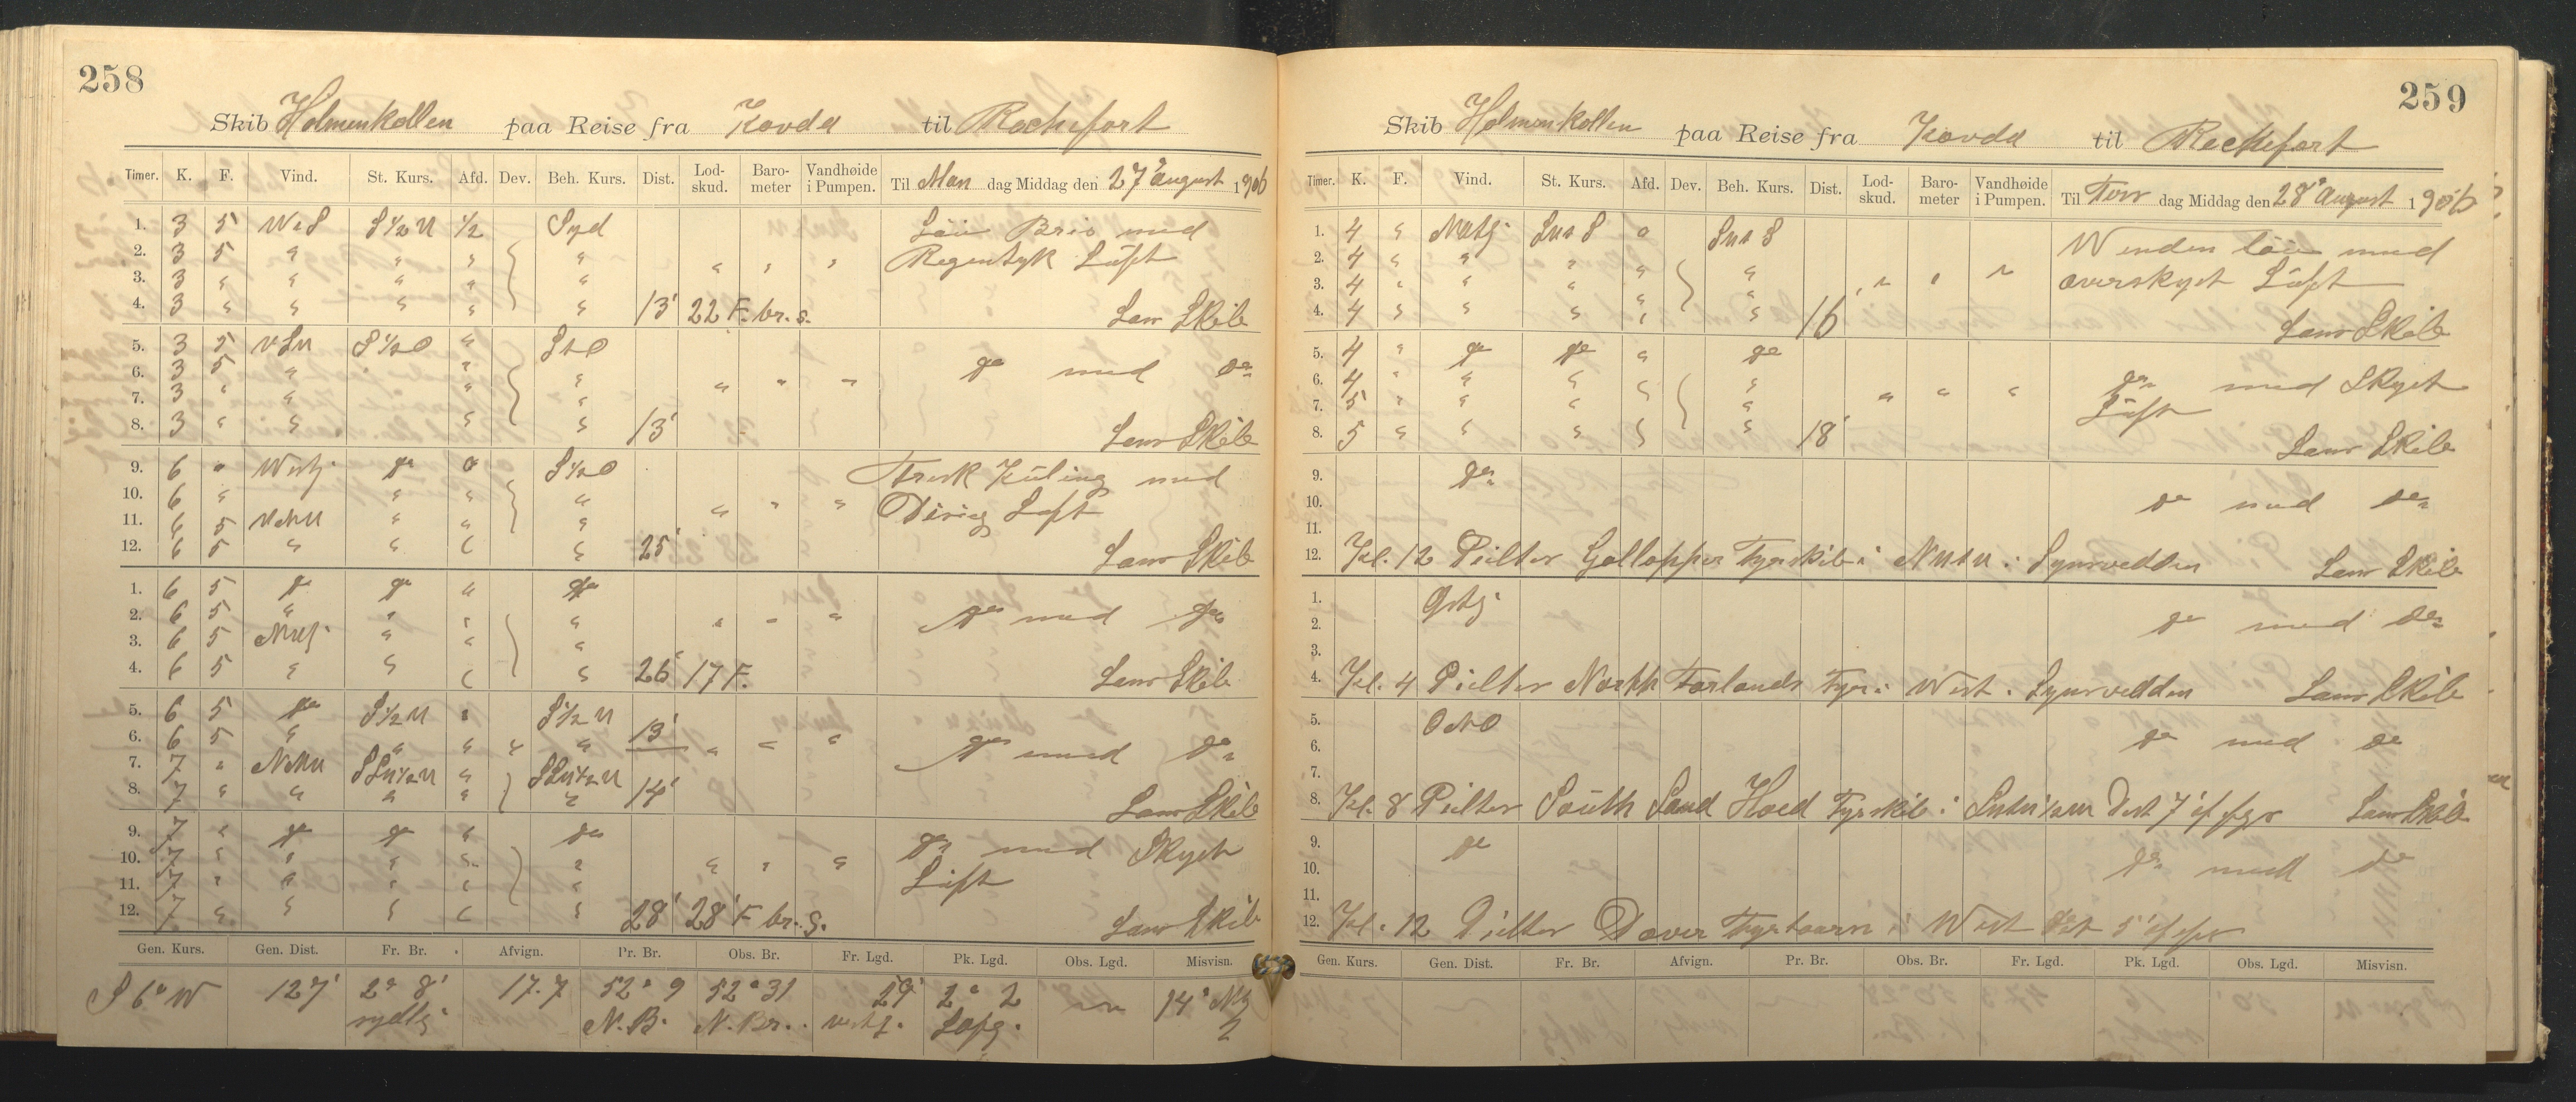 258
Skib Holmenkollen paa Reise fra Kovda til Rochefort
Timer. K. F. Vind. St. Kurs. Afd. Dev. Beh. Kurs. Dist. Lod-skud. Baro-meter Vandhøide i Pumpen. Til Man dag Middag den 27 August 1906
1. 3 5 S½ ½ Syd Löi Bris med
2. 3 5 " " " " " " " Regntyk Luft
3. 3 " " " " "
4. 3 " " " " " 13' 22 F. br. s. Lens Skib
5. 3 5 S½O " StO
6. 3 5 " " " " " " do med do
7. 3 " " " "
8. 3 " " " " 13' Lens Skib
9. 6 " Westj. do o S½O Frisk Kuling med
10. 6 " " " " " " " Disig Luft
11. 6 5 " " "
12. 6 5 " " " " 25' Lens Skib
1. 6 5 do do " do
2. 6 5 " " " " " " " do med do
3. 6 5 " " "
4. 6 5 " " " " 26' 17 F. Lens Skib
5. 6 5 do S½ " S½ 13'
6. 6 5 " " " " " " " " do med do
7. 7 " "
8. 7 " " " " " 14' Lens Skib
9. 7 " do do " do do med Skyet
10. 7 " " " " " " " " Luft
11. 7 " " " " "
12. 7 " " " " " 28' 28 F br. s. Lens Skib
Gen. Kurs. Gen. Dist. Fr. Br. Afvign. Pr. Br. Obs. Br. Fr. Lgd. Pk. Lgd. Obs. Lgd. Misvisn.
S 6° W 127' 2° 8' 17.7 52° 9 52° 31 29' 2° 2 14°
sydlg. N. B. N. Br. vestl.
259
Skib Holmenkollen paa Reise fra Kovda til Rochefort
Timer. K. F. Vind. St. Kurs. Afd. Dev. Beh. Kurs. Dist. Lod-skud. Baro-meter Vandhøide i Pumpen. Til Tirs dag Middag den 28 August 1906
1. 4 " o Winden löi med
2. 4 " " " " " " " " overskyet Luft
3. 4 " " " " "
4. 4 " " " " " 16 Lens Skib
5. 4 " do do " do
6. 4 " " " " " " " " do med Skyet
7. 5 " " " " " Luft
8. 5 " " " " " 18' Lens Skib
9. do
10. do med do
11.
12. Kl. 12 Peilter Gallopper Fyrskib i Lens Skib
1. Ostlj
2. do med do
3.
4. Kl. 4 Peilter North Forlands Fyr i West. Lens Skib
5. ONO
6. do med do
7.
8. Kl. 8 Peilter South Sand Hoed Fyrskib i Dist 7' Lens Skib
9. do
10. do med do
11.
12. Kl. 12 Peilter Dover Fyrtaarn i West Dist 5'
Gen. Kurs. Gen. Dist. Fr. Br. Afvign. Pr. Br. Obs. Br. Fr. Lgd. Pk. Lgd. Obs. Lgd. Misvisn.